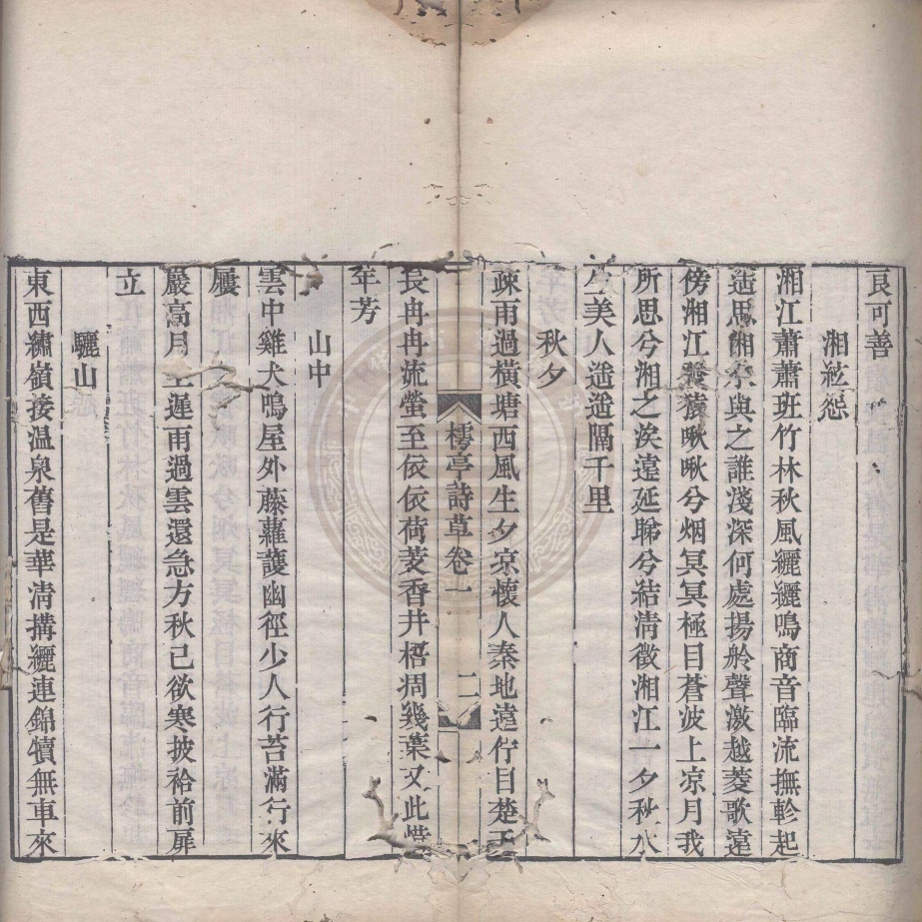 良可善
湘絃怨
湘江蕭蕭班竹林秋風纚纚鳴商音臨流撫軫起
遥思湘與之誰淺深何處揚舲聲激越菱歌遠
傍湘江發猿啾啾兮烟冥冥極目蒼波上凉月我
所思兮湘之涘遠延睇兮結清徵湘江一夕秋水
生美人遥遥隔千里
秋夕
疎雨過橫塘西風生夕凉懷人秦地遠佇目楚天
樗亭詩草卷一 二
長冉冉流螢至依依荷芰香井梧凋幾葉又此惜
年芳
山中
雲中雞犬鳴屋外藤蘿護幽徑少人行苔滿行來
屨
巖高月上遲雨過雲還急方秋已欲寒披袷前扉
立
驪山
東西繡嶺接温泉舊是華清搆纚連錦犢無車來